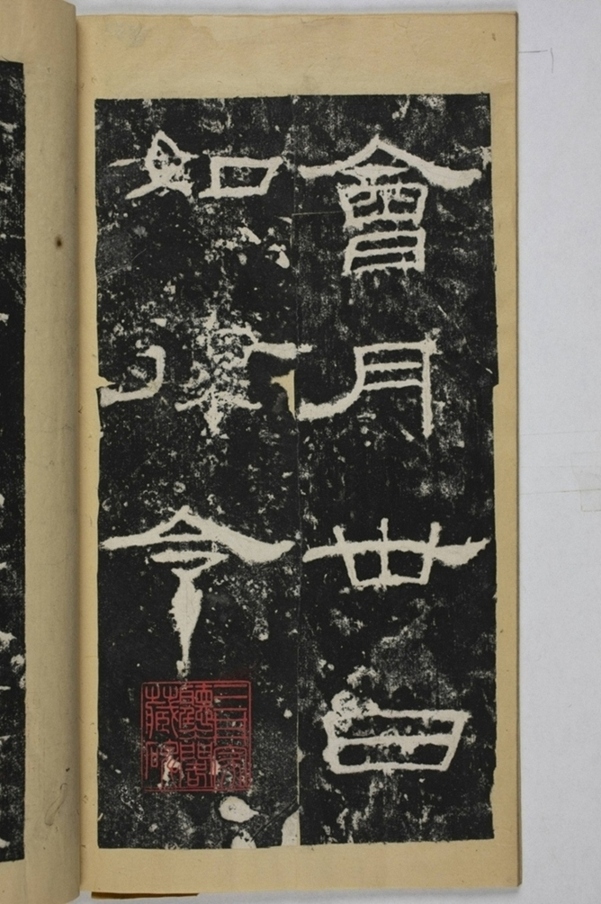 會月丗日
如律令